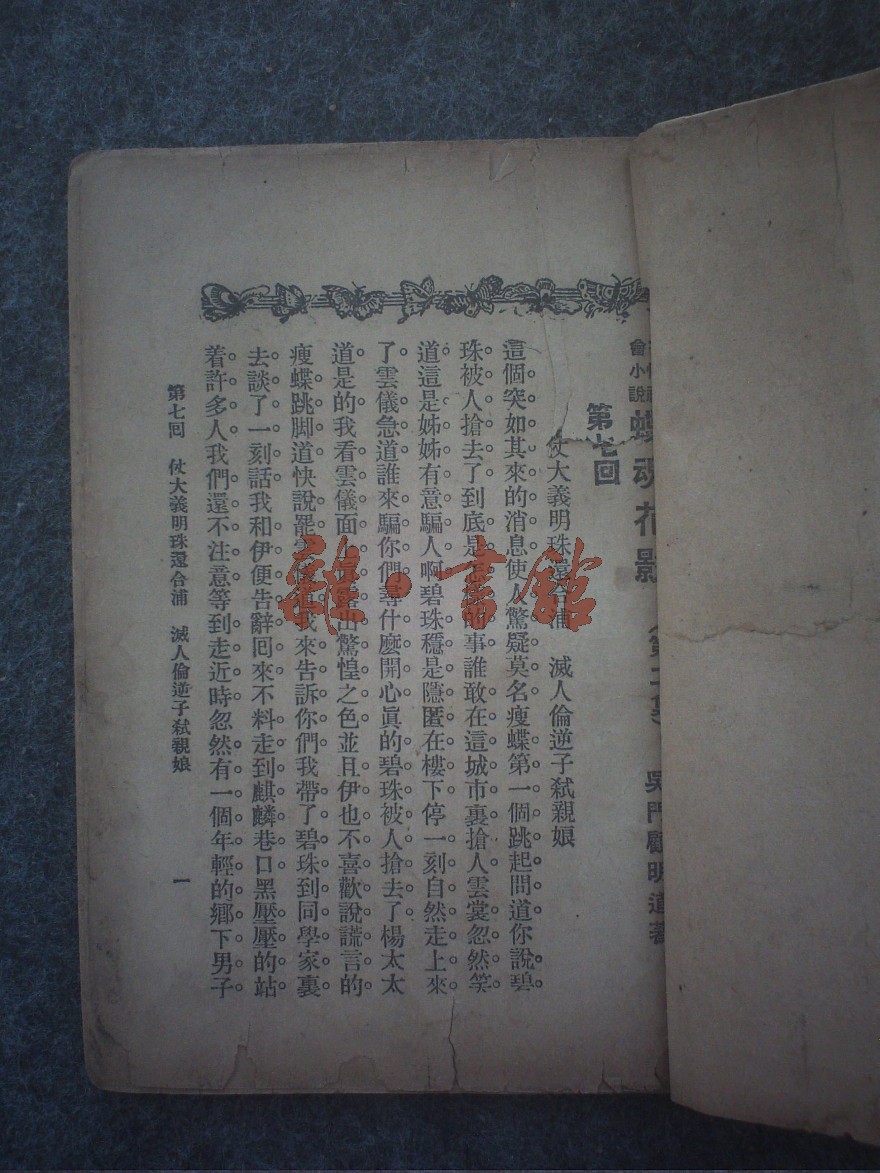 會小說
蝶魂花影
吳門顧明道著
第七回
仗大義明珠還合浦　滅人倫逆子弒親娘
這個突如其來的消息使人驚疑莫名瘦蝶第一個跳起問道你說碧
珠被人搶去了到底是怎樣的事誰敢在這城市裏搶人雲裳忽然笑
道這是姊姊有意騙人啊碧珠穩是隱匿在樓下停一刻自然走上來
了雲儀急道誰來騙你們尋什麽開心眞的碧珠被人搶去了楊太太
道是的我看雲儀面上露出驚惶之色並且伊也不喜歡說謊言的
瘦蝶跳脚道快說罷雲儀道我來告訴你們我帶了碧珠到同學家裏
去談了一刻話我和伊便告辭回來不料走到麒麟巷口黑壓壓的站
着許多人我們還不注意等到走近時忽然有一個年輕的鄉下男子
第七回　仗大義明珠還合浦　滅人倫逆子弒親娘　一
雜·書館